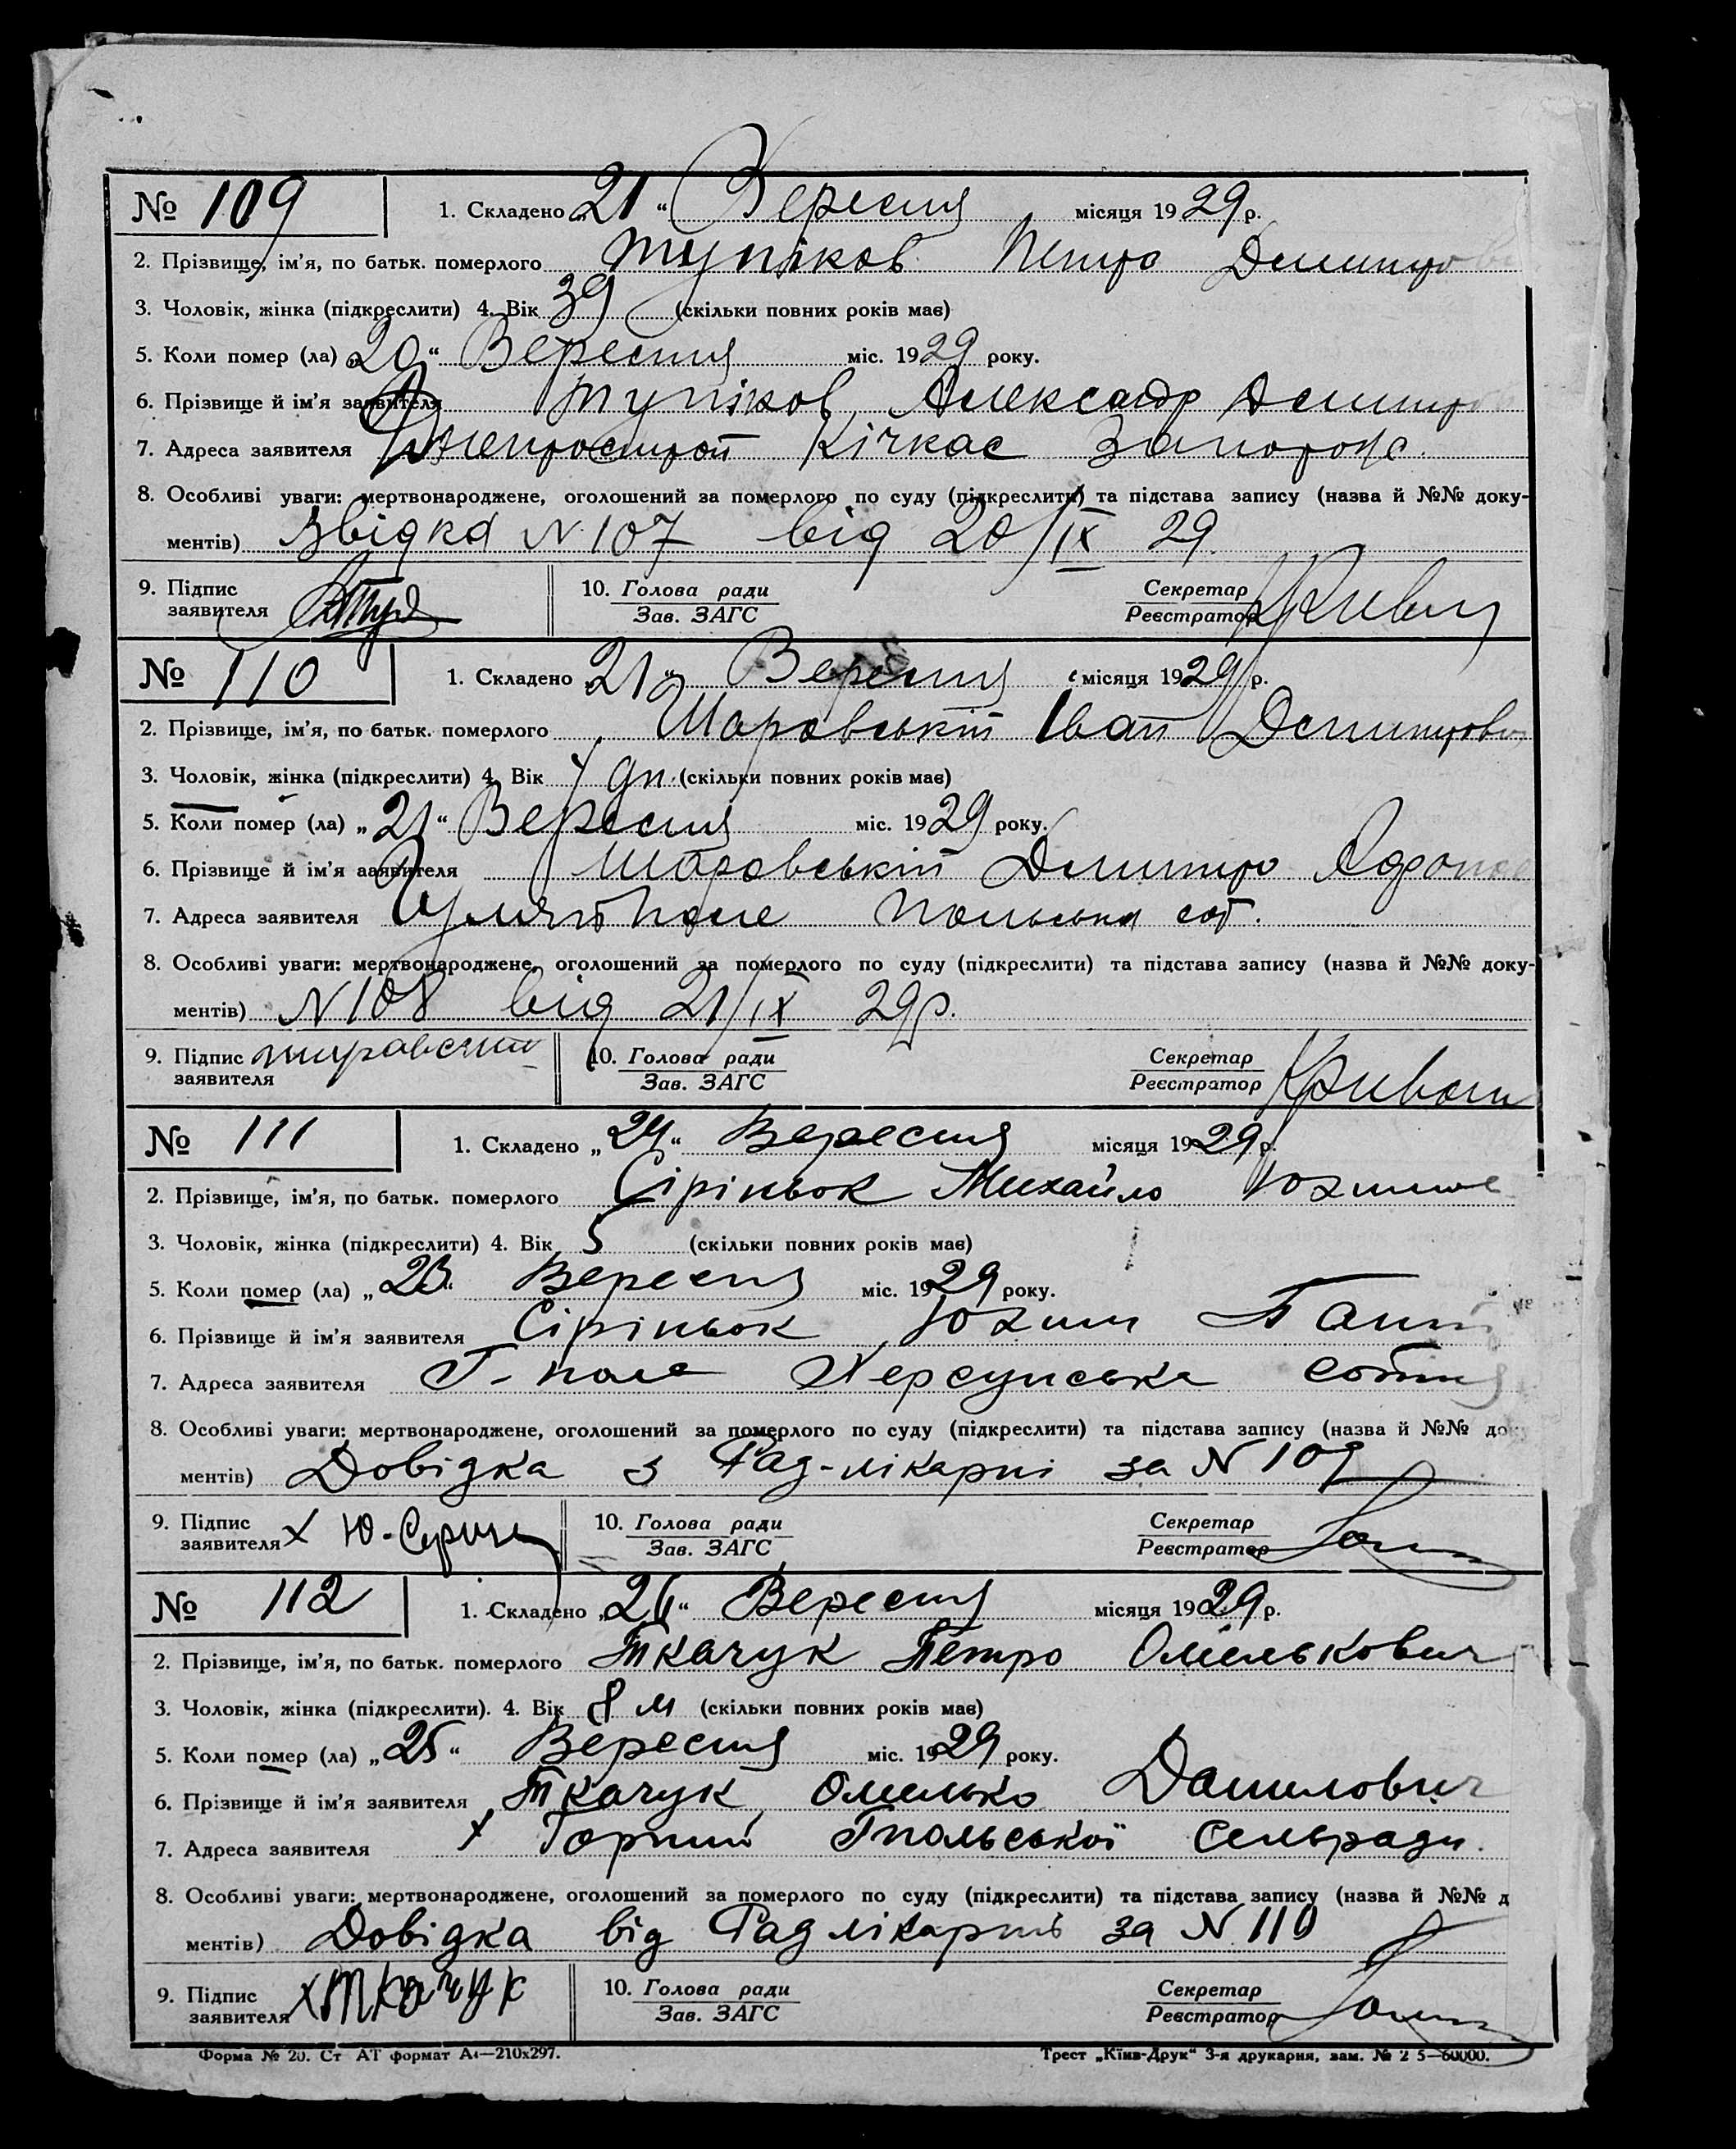 № 109 1. Складено „21“ Вересня місяця 1929 р.
2. Прізвище, ім’я, по батьк. померлого Тупіков Петро Дмитрови
3. Чоловік, жінка (підкреслити) 4. Вік 39 (скільки повних років має)
5. Коли помер (ла) „20“ Вересня міс. 1929 року.
6. Прізвище й ім’я заявителя Тупіков Александр Дмитр
7. Адреса заявителя Днепрострой Кічкас Запорожс.
8. Особливі уваги: мертвонароджене, оголошений за померлого по суду (підкреслити) та підстава запису (назва й №№ доку-
ментів) Звідка N 107 від 20/IX 29.
9. Підпис 10. Голова ради Секретар
заявителя Зав. ЗАГС Реєстратор
№ 110 1. Складено „21“ Вересня місяця 1929 р.
2. Прізвище, ім’я, по батьк. померлого Шаровській Іван Дмитрови
3. Чоловік, жінка (підкреслити) 4. Вік дн. (скільки повних років має)
5. Коли помер (ла) „21“ Вересня міс. 1929 року.
6. Прізвище й ім’я заявителя Шаровській Дмитро
7. Адреса заявителя Гуляй Поле Польська сот.
8. Особливі уваги: мертвонароджене, оголошений за померлого по суду (підкреслити) та підстава запису (назва й №№ доку-
ментів) N 108 від 21/IX 29р.
9. Підпис 10. Голова ради Секретар
заявителя Зав. ЗАГС Реєстратор
№ 111 1. Складено „24“ Вересня місяця 1929 р.
2. Прізвище, ім’я, по батьк. померлого Сіріньок Михайло
3. Чоловік, жінка (підкреслити) 4. Вік 5 (скільки повних років має)
5. Коли помер (ла) „23“ Вересня міс. 1929 року.
6. Прізвище й ім’я заявителя Сіріньок Юхим
7. Адреса заявителя Г-поле Херсунська сотня
8. Особливі уваги: мертвонароджене, оголошений за померлого по суду (підкреслити) та підстава запису (назва й №№ доку
ментів) Довідка з Рад-лікарні за N 109
9. Підпис 10. Голова ради Секретар
заявителя х Ю- Зав. ЗАГС Реєстратор
№ 112 1. Складено „26“ Вересня місяця 1929 р.
2. Прізвище, ім’я, по батьк. померлого Ткачук Петро Омелькович
3. Чоловік, жінка (підкреслити). 4. Вік 8 м (скільки повних років має)
5. Коли помер (ла) „25“ Вересня міс. 1929 року.
6. Прізвище й ім’я заявителя Ткачук Омелько Данилович
7. Адреса заявителя х Горький Гпольської Сельради.
8. Особливі уваги: мертвонароджене, оголошений за померлого по суду (підкреслити) та підстава запису (назва й №№ д
ментів) Довідка від Рад лікарні за N 110
9. Підпис 10. Голова ради Секретар
заявителя х Ткачук Зав. ЗАГС Реєстратор
Форма № 20. Ст АТ формат А4—210х297. Трест „Київ-Друк“ 3-я друкарня, зам. № 2 5—60000.